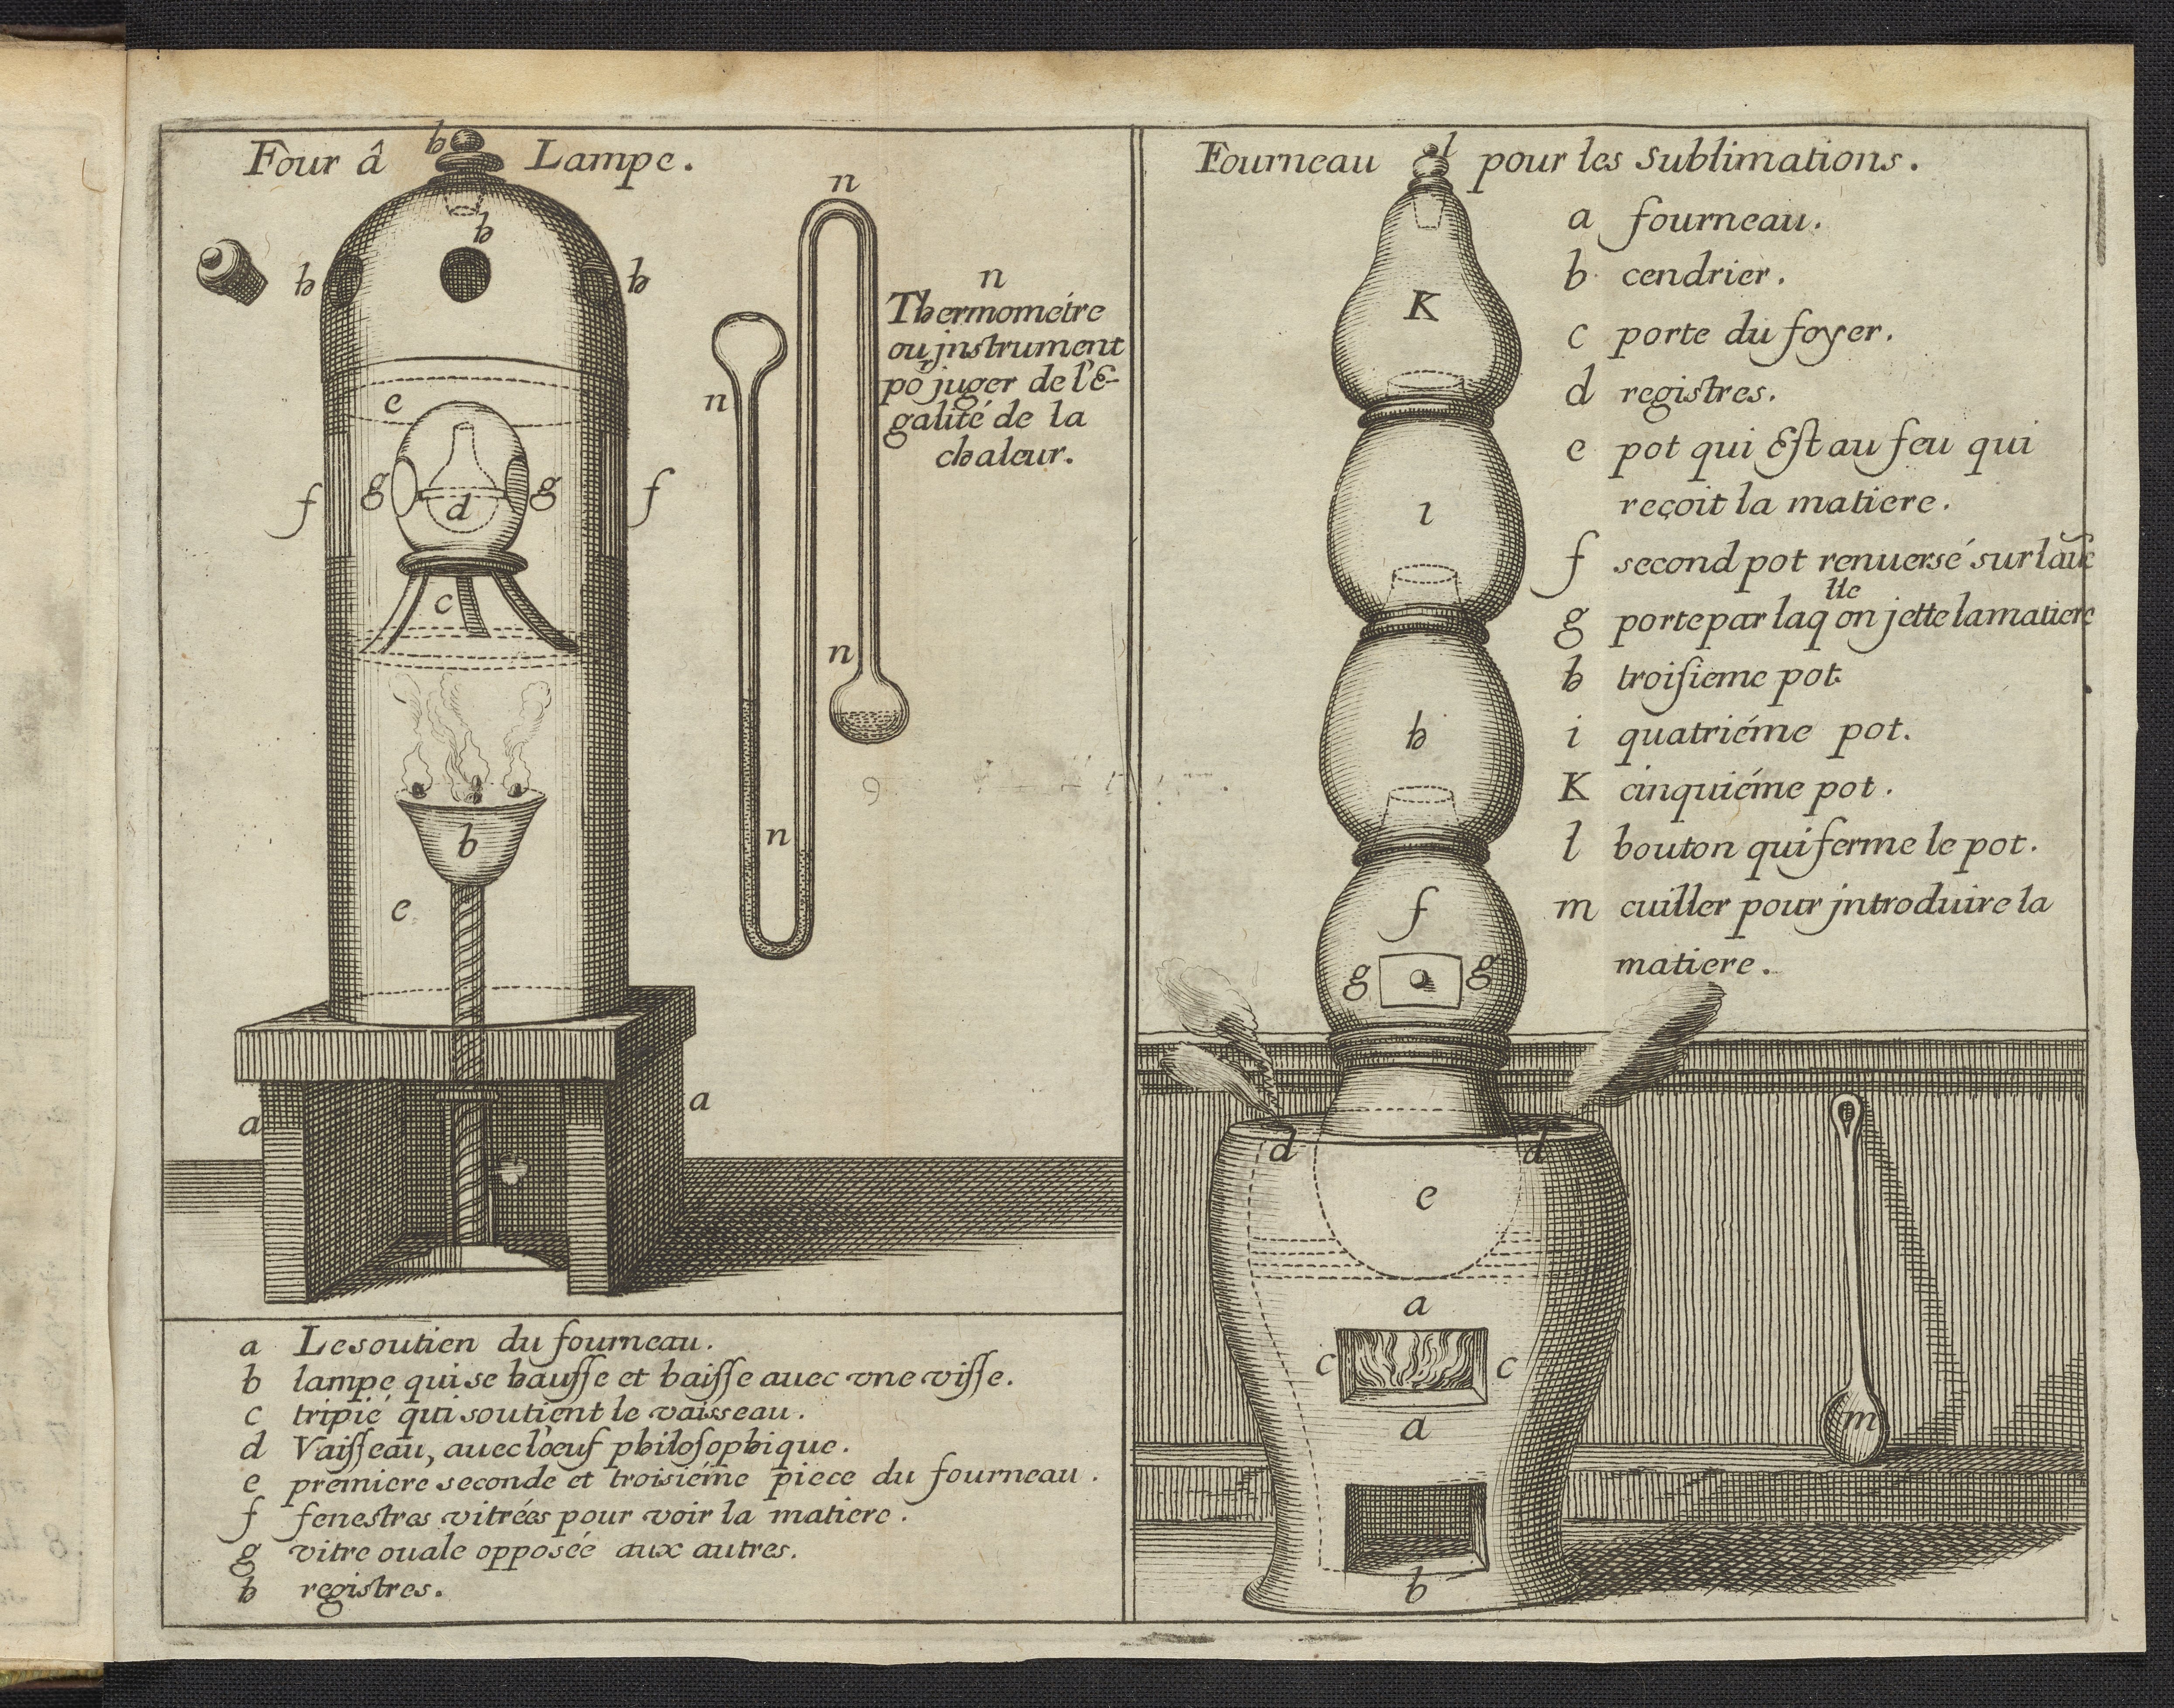 Four â Lampe.
h
h
h
h
n
n
Thermométre
ou jnstrument
po juger de l'E-
galité de la
chaleur.
n
e
f
g
d
g
f
c
n
n
b
e
a
a
a Le soutien du fourneau.
b lampe qui se hausse et baisse avec vne visse.
c tripié qui soutient le vaisseau.
d Vaisseau, auec l'oeuf philosophique.
e premiere seconde et troisiéme piece du fourneau.
f fenestres vitrées pour voir la matiere.
g vitre ouale opposéé aux autres.
h registres.
Fourneau pour les Sublimations.
l
a fourneau.
b cendrier.
c porte du foyer.
d registres.
e pot qui Est au feu qui
reçoit la matiere.
f second pot renuersé sur
g porte par laqlle on jette la matiere
h troisieme pot.
i quatriéme pot.
K cinquiéme pot.
l bouton qui ferme le pot.
m cuiller pour jntroduire la
matiere.
K
i
h
f
g
g
d
d
e
a
c
c
a
b
m